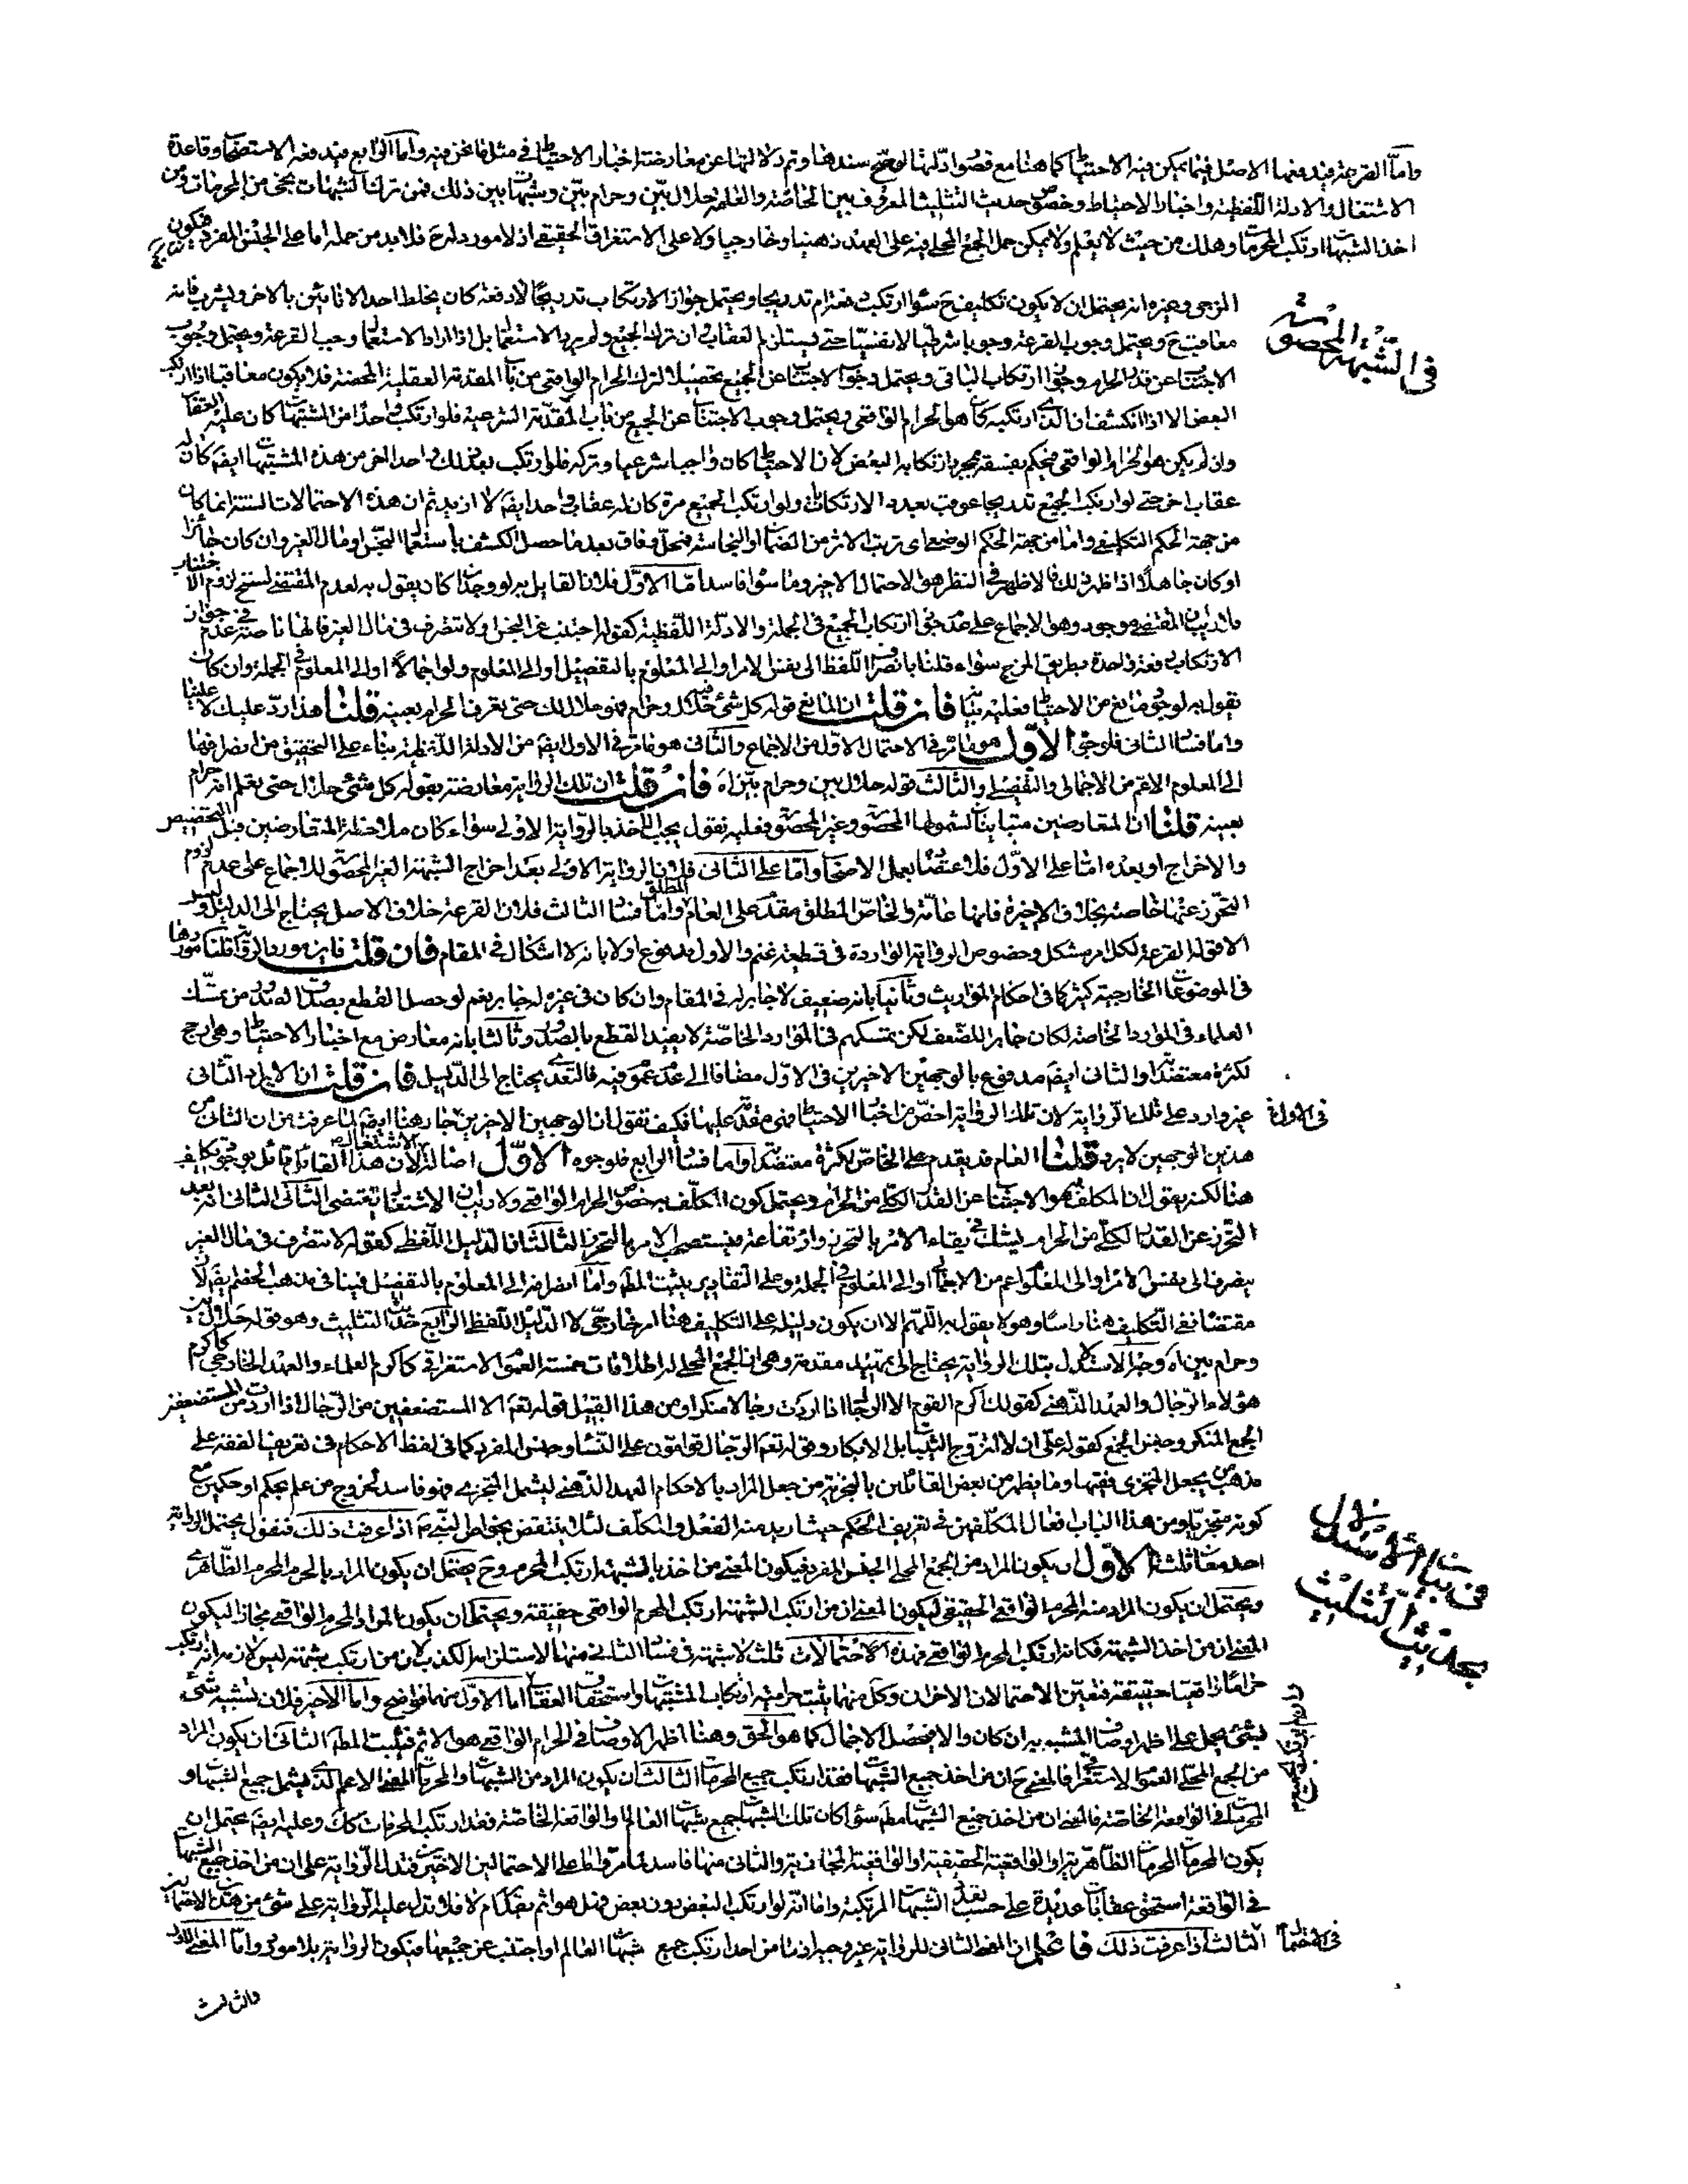 واما القرعة فيدفعها الاصل فيما يمكن فيه الاحتياط كما هنا مع قصور ادلتها لوضح سندها وتم دلالتها عن معارضة اخبار الاحتياط في مثل ما نحن فيه واما الرابع فيدفعه الاستصحاب وقاعدة
الاشتغال والادلة اللفظية واخبار الاحتياط وخصوص حديث التثليث المعروف بين الخاصة والعامة حلال بين وحرام بين وشبهات بين ذلك فمن ترك الشبهات نجى من المحرمات ومن
اخذ الشبهات ارتكب المحرمات وهلك من حيث لا يعلم ولا يمكن حمل الجمع المحلى فيه على العهد ذهنيا وخارجيا ولا على الاستغراق الحقيقي اذ لا مورد له ح فلا بد من حمله اما على الجنس المفرد فيكون
في الشبهة المحصورة
المزجي وغيره انه يحتمل ان لا يكون تكليف ح سواء ارتكب دفعة ام تدريجا ويحتمل جواز الارتكاب تدريجا لا دفعة كان يخلط احد الانائين بالاخر ويشرب فانه
معاقب ح ويحتمل وجوب القرعة وجوبا شرطيا لا نفسيا حتى يستلزم العقاب ان ترك الجميع ولم يرد الاستعمال بل اذا اراد الاستعمال وجب القرعة ويحتمل وجوب
الاجتناب عن قدر الحرام وجواز ارتكاب الباقي ويحتمل وجوب الاجتناب عن الجميع تحصيلا لترك الحرام الواقعي من باب المقدمة العقلية المحضة فلا يكون معاقبا اذا ارتكب
البعض الا اذا انكشف ان الذي ارتكبه كان هو الحرام الواقعي ويحتمل وجوب الاجتناب عن الجميع من باب المقدمة الشرعية فلو ارتكب واحدا من المشتبهات كان عليه العقاب
وان لم يكن هو الحرام الواقعي فيحكم بفسقه بمجرد ارتكابه البعض لان الاحتياط كان واجبا شرعيا وتركه فلو ارتكب بعد ذلك واحدا اخر من هذه المشتبهات ايضا كان له
عقاب اخر حتى لو ارتكب الجميع تدريجا عوقب بعدد الارتكابات ولو ارتكب الجميع مرة كان له عقاب واحد ايضا لا ازيد ثم ان هذه الاحتمالات الستة انما كان
من جهة الحكم التكليفي واما من جهة الحكم الوضعي اي ترتب الاثر من الضمان او النجاسة فمحل وفاق بعد ما حصل الكشف باستعمال النجس او مال الغير وان كان جائزا
او كان جاهلا اذا ظهر ذلك فالاظهر في النظر هو الاحتمال الاخير وما سواه فاسد اما الاول فلان القايل به لو وجد اما كان يقول به لعدم المقتضى لستح لزوم الاجتناب
فلا ريب ان المقتضى موجود وهو الاجماع على عدم جواز ارتكاب الجميع في الجملة والادلة اللفظية كقوله اجتنب عن النجس ولا تتصرف في مال الغير فانها ناصة في عدم جواز
الارتكاب دفعة واحدة بطريق المزج سواء قلنا بانصراف اللفظ الى نفس الامر او الى المعلوم بالتفصيل او الى المعلوم ولو اجمالا او الى المعلوم في الجملة وان كان
يقول به لوجود مانع من الاحتياط فعليه بيانه فان قلت ان المانع قوله كل شئ فيه حلال وحرام فهو حلال لك حتى تعرف الحرام بعينه قلنا هذا رد عليك لا علينا
واما فساد الثاني فلوجوه الاول هو ما مر في الاحتمال الاول من الاجماع والثاني هو ما مر في الاول ايضا من الادلة اللفظية بناء على التحقيق من انصرافها
الى المعلوم الاعم من الاجمالي والتفصيلي والثالث قوله حلال بين وحرام بين اه فان قلت ان تلك الرواية معارضة بقوله كل شئ حلال حتى تعلم انه حرام
بعينه قلنا ان المتعارضين متباينان لشمولهما المحصور وغير المحصور وعليه نقول يجب الاخذ بالرواية الاولى سواء كان ملاحظة المتعارضين قبل التخصيص
والاخراج او بعده اما على الاول فلاعتضاها بعمل الاصحاب واما على الثاني فلان الرواية الاولى بعد اخراج الشبهة الغير المحصورة للاجماع على عدم لزوم
التحرز عنها خاصة بخلاف الاخيرة فانها عامة والخاص المطلق مقدم على العام المطلق واما فساد الثالث فلان القرعة خلاف الاصل يحتاج الى الدليل وليس
الا قوله القرعة لكل امر مشكل وخصوص الرواية الواردة في قطيعة غنم والاول مدفوع اولا بانه لا اشكال في المقام فان قلت فاين مورد الرواية قلنا موردها
في الموضوعات الخارجية كثير كما في احكام المواريث وثانيا بانه ضعيف لا جابر له في المقام وان كان في غيره له جابر نعم لو حصل القطع بصدوره من تمسك
العلماء في الموارد الخاصة لكان جابرا للضعف لكن تمسكهم في الموارد الخاصة لا يفيد القطع بالصدور وثالثا بانه معارض مع اخبار الاحتياط وهي ارجح
لكثرة معتضداتها والثاني ايضا مدفوع بالوجهين الاخيرين في الاول مضافا الى عدم عموم فيه فالتعدي يحتاج الى الدليل فان قلت ان الايراد الثاني
في الاول غير وارد على تلك الرواية لان تلك الرواية اخص من اخبار الاحتياط فهي مقدم عليها فكيف تقول ان الوجهين الاخيرين جار هنا ايضا لما عرفت من ان الثاني من
هذين الوجهين لا يرد قلنا العام قد يقدم على الخاص لكثرة معتضداته واما فساد الرابع فلوجوه الاول اصالة الاشتغال لان هذا القائل قائل بوجود تكليف
هنا لكنه يقول ان المكلف به هو الاجتناب عن القدر الكلي من الحرام ويحتمل كون المكلف به خصوص الحرام الواقعي ولا ريب ان الاشتغال يقتضي الثاني الثاني انه بعد
التحرز عن القدر الكلي من الحرام يشك في بقاء الامر بالتحرز وارتفاعه فيستصحب الامر بالتحرز الثالث ان الدليل اللفظي كقوله لا تتصرف في مال الغير
ينصرف الى نفس الامر او الى المعلوم اعم من الاجمالي او الى المعلوم في الجملة وعلى التقادير يثبت المط واما انصرافه الى المعلوم بالتفصيل فينافي مذهب الخصم ايضا لان
مقتضاه نفي التكليف هنا راسا وهو لا يقول به اللهم الا ان يكون دليله على التكليف هنا امر خارجي لا الدليل اللفظي الرابع حديث التثليث وهو قوله حلال بين
وحرام بين اه وجه الاستدلال بتلك الرواية يحتاج الى تمهيد مقدمة وهي ان الجمع المحلى له اطلاقات خمسة العموم الاستغراقي كاكرم العلماء والعهد الخارجي كاكرم
هؤلاء الرجال والعهد الذهني كقولك اكرم القوم الا الرجال اذا اردت رجالا منكرا ومن هذا القبيل قوله تعم الا المستضعفين من الرجال اذا اردت من المستضعفين
الجمع المنكر وجنس الجمع كقوله على ان لا اتزوج الثيبات بل الابكار وقوله تعم الرجال قوامون على النساء وجنس المفرد كما في لفظ الاحكام في تعريف الفقه على
مذهب من يجعل المتجزي فقيها وما يظهر من بعض القائلين بالتجزي من جعل المراد بالاحكام العهد الذهني ليشمل المتجزي فهو فاسد لخروج من علم بحكم او حكمين مع
كونه متجزيا ومن هذا الباب افعال المكلفين في تعريف الحكم حيث اريد منه الفعل والمكلف لئلا ينتقض بخواص النبي ص اذا عرفت ذلك فنقول يحتمل الرواية
في بيان الاستدلال
بحديث التثليث
احد معان ثلثة الاول ان يكون المراد من الجمع المحلى الجنس المفرد فيكون المعنى من اخذ بالشبهة ارتكب المحرم وح يحتمل ان يكون المراد بالمحرم المحرم الظاهري
ويحتمل ان يكون المراد منه المحرم الواقعي الحقيقي ليكون المعنى ان من ارتكب الشبهة ارتكب المحرم الواقعي حقيقة ويحتمل ان يكون المراد المحرم الواقعي مجازا ليكون
المعنى ان من اخذ الشبهة فكانه ارتكب المحرم الواقعي فهذه الاحتمالات ثلث لا شبهة في فساد الثاني منها لاستلزامه الكذب لان من ارتكب شبهة ليس لازمه انه ارتكب
حراما واقعيا حقيقة فتعين الاحتمالان الاخران وكل منهما يثبت حرمة ارتكاب المشتبهات واستحقاق العقاب اما الاول منهما فواضح واما الاخير فلان تشبيه شئ
بشئ يحمل على اظهر اوصاف المشبه به ان كان والا فيحصل الاجمال كما هو الحق وهنا اظهر الاوصاف في الحرام الواقعي هو الاثم فيثبت المط الثاني ان يكون المراد
من الجمع المحلى العموم الاستغراقي فالمعنى ح ان من اخذ جميع الشبهات فقد ارتكب جميع المحرمات الثالث ان يكون المراد من الشبهات والمحرمات المعنى الاعم الذي يشمل جميع الشبهات و
المحرمات في الواقعة الخاصة فالمعنى ان من اخذ جميع الشبهات مط سواء كان تلك الشبهات جميع شبهات العالم او الواقعة الخاصة فقد ارتكب المحرمات كك وعليه ايضا يحتمل ان
يكون المحرمات المحرمات الظاهرية او الواقعية الحقيقية او الواقعية المجازية والثاني منها فاسد لما مر واما على الاحتمالين الاخيرين فتدل الرواية على ان من اخذ جميع الشبهات
في الواقعة استحق عقابات عديدة على حسب تعدد الشبهات المرتكبة واما انه لو ارتكب البعض دون بعض فهل هو اثم بقدر ام لا فلا تدل عليه الرواية على شئ من هذين الاحتمالين
في الاحتمال الثالث اذا عرفت ذلك فاعلم ان المعنى الثاني للرواية غير وجيه اذ ما من احد ارتكب جميع شبهات العالم او اجتنب عن جميعها فيكون الرواية بلا مورد واما المعنى الاول
والثالث